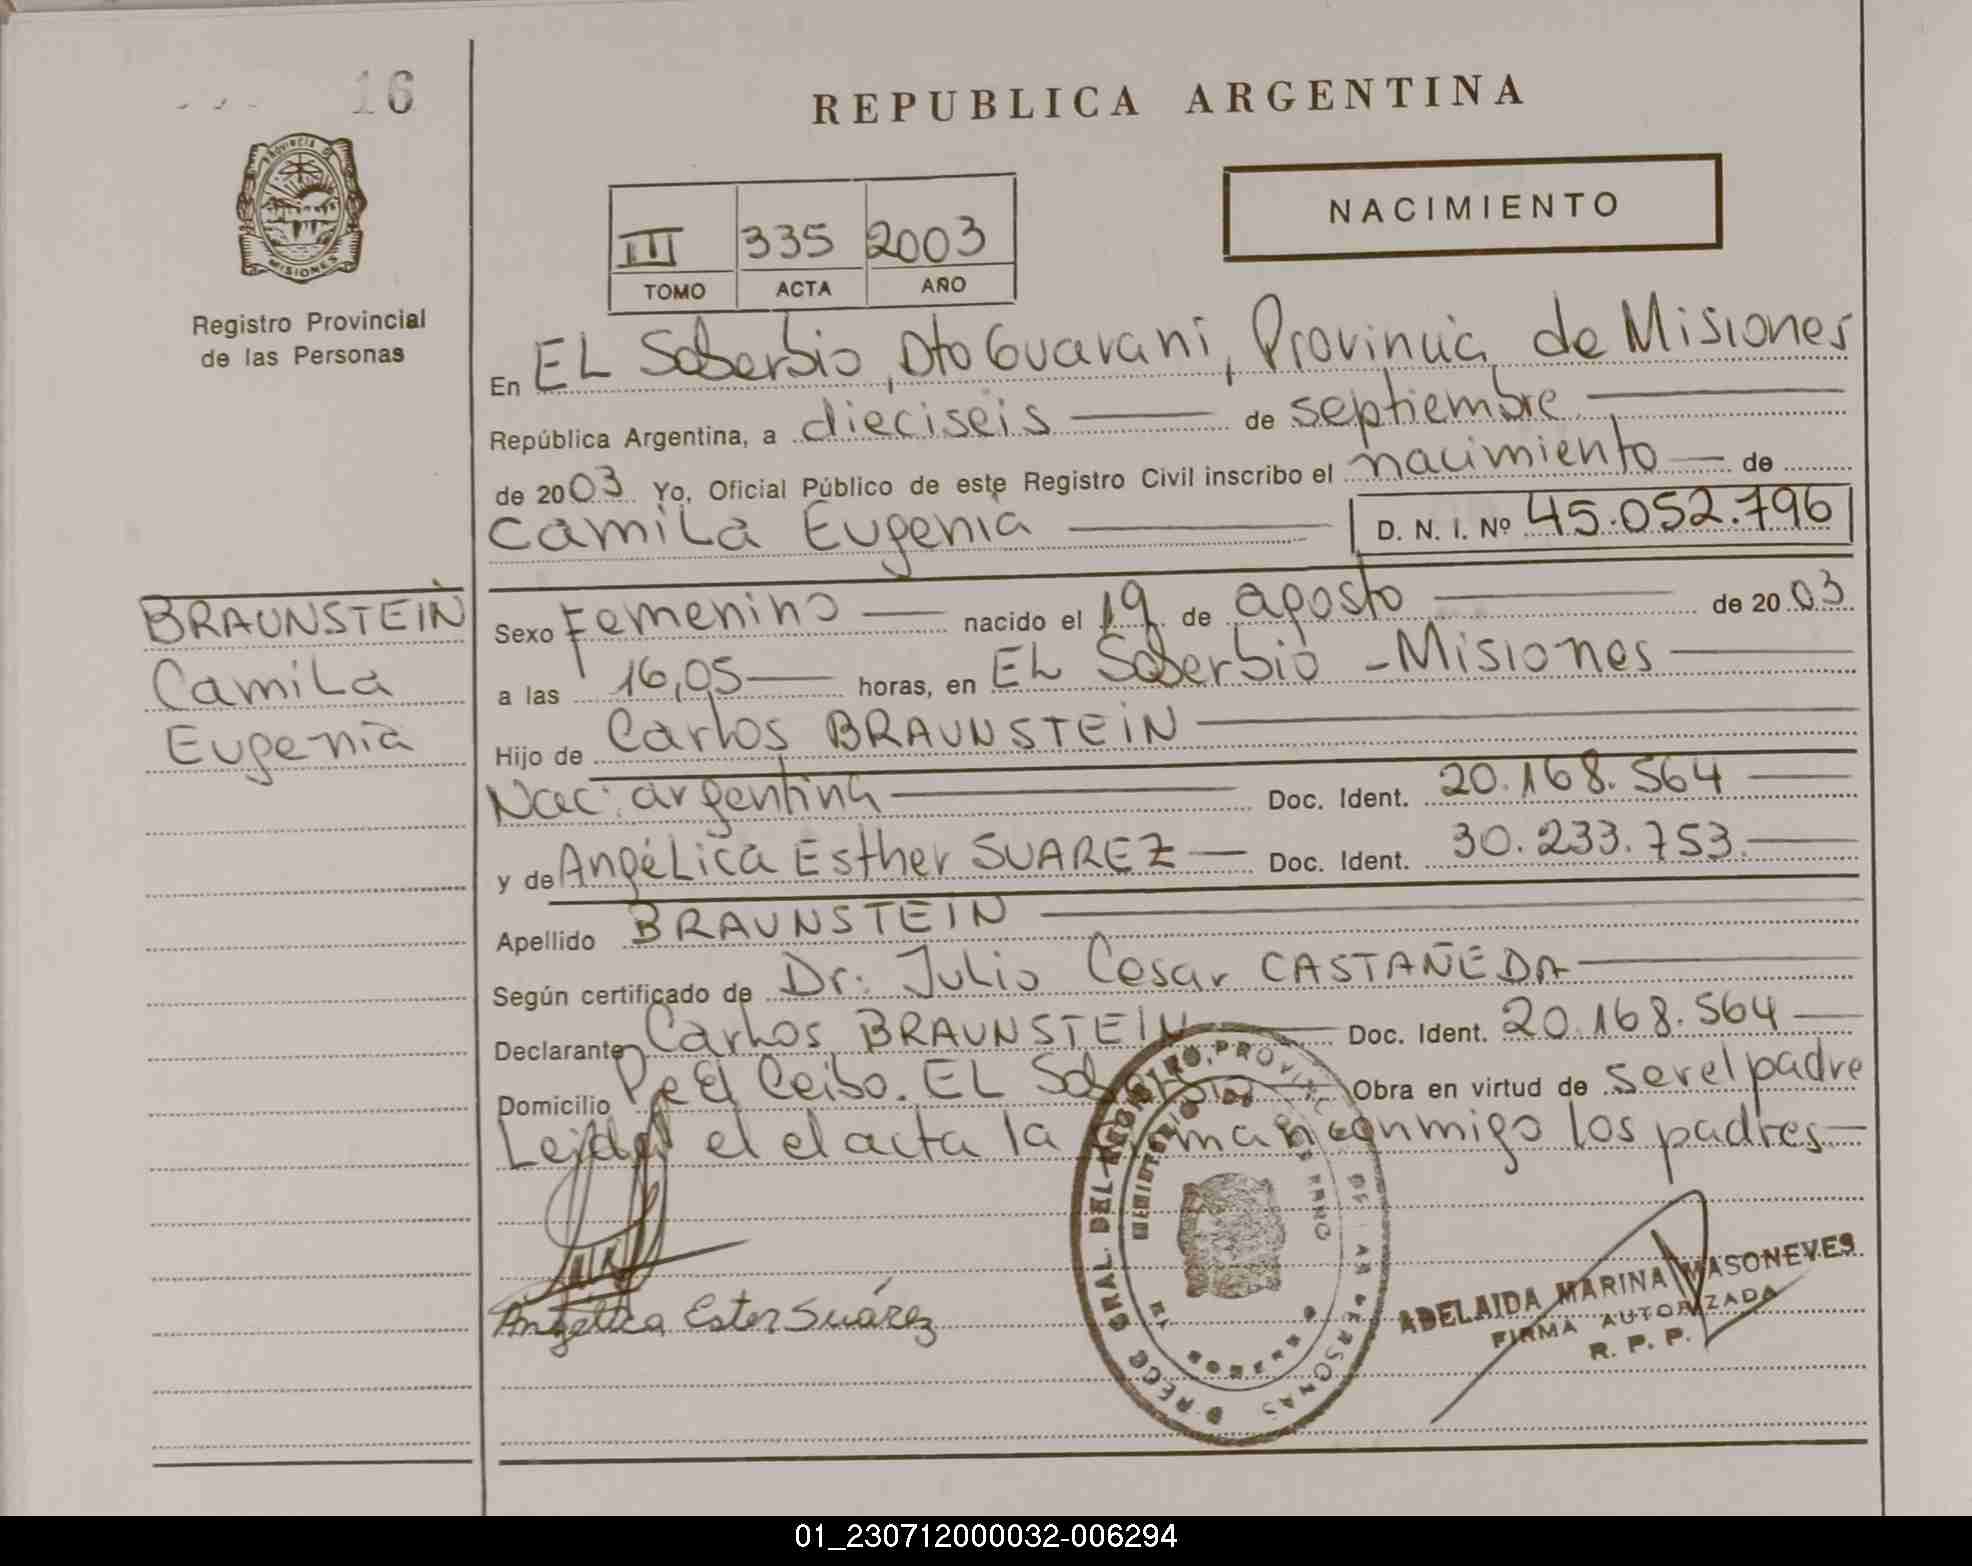 16
REPUBLICA ARGENTINA
PROVINCIA DE
MISIONES
Registro Provincial
de las Personas
III 335 2003
TOMO ACTA AÑO
NACIMIENTO
En EL Soberbio, Dto Guarani, Provincia de Misiones
República Argentina, a dieciseis de septiembre
de 2003 Yo, Oficial Público de este Registro Civil inscribo el nacimiento de
Camila Eugenia D. N. I. Nº 45.052.796
BRAUNSTEIN
Camila
Eugenia
Sexo Femenino nacido el 19 de agosto de 2003
a las 16,05 horas, en EL Soberbio - Misiones
Hijo de Carlos BRAUNSTEIN
Nac: argentina Doc. Ident. 20.168.564
y de Angélica Esther SUAREZ Doc. Ident. 30.233.753.
Apellido BRAUNSTEIN
Según certificado de Dr: Julio Cesar CASTAÑEDA
Declarante Carlos BRAUNSTEIN Doc. Ident. 20.168.564
Domicilio El Ceibo. EL Soberbio Obra en virtud de ser el padre
Leida el el acta la firman conmigo los padres
Angélica Ester Suárez
DIRECC GRAL. DEL REGISTRO. PROVINC. DE LAS PERSONAS
MINISTERIO DE
ADELAIDA MARINA MASONEVES
FIRMA AUTORIZADA
R. P. P.
01_230712000032-006294